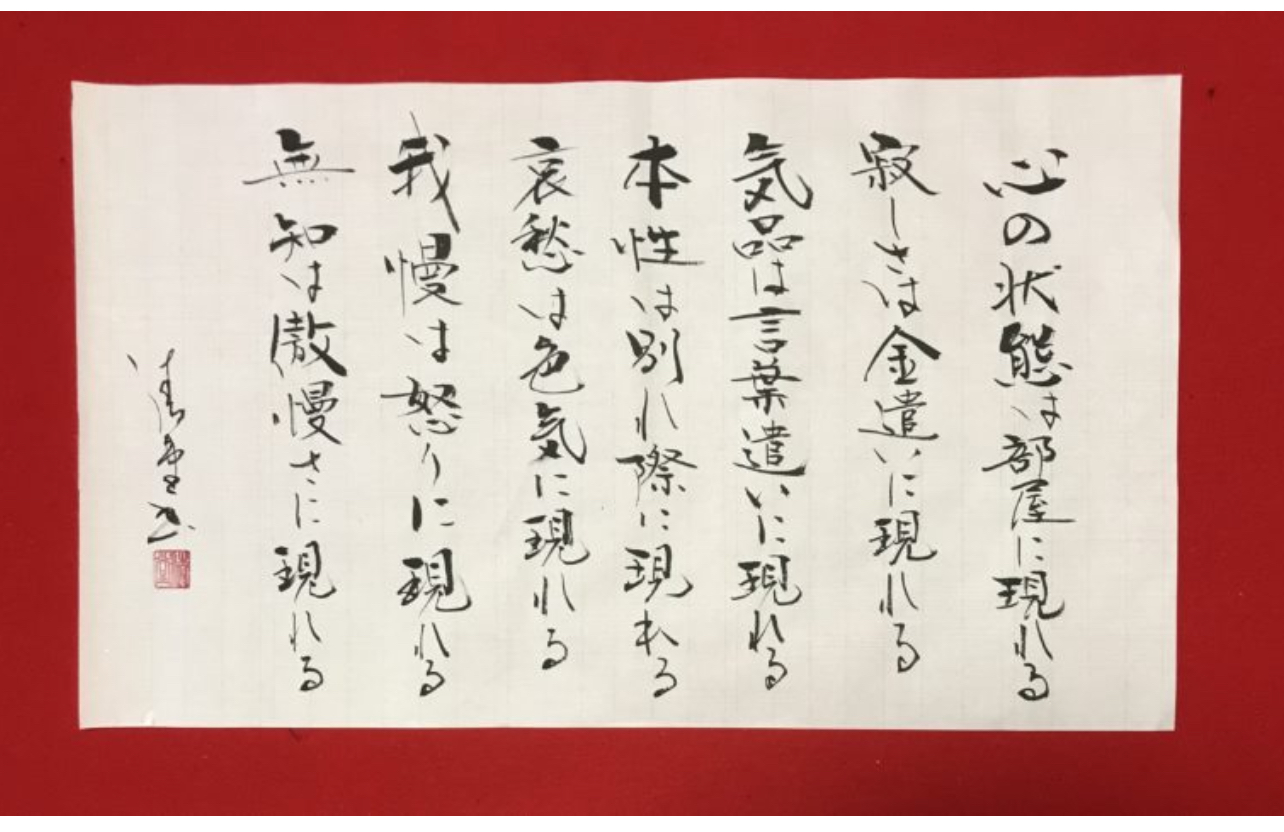 心の状態は部屋に現れる
寂しさは金遣いに現れる
気品は言葉遣いに現れる
本性は別れ際に現れる
哀愁は色気に現れる
我慢は怒りに現れる
無知は傲慢さに現れる